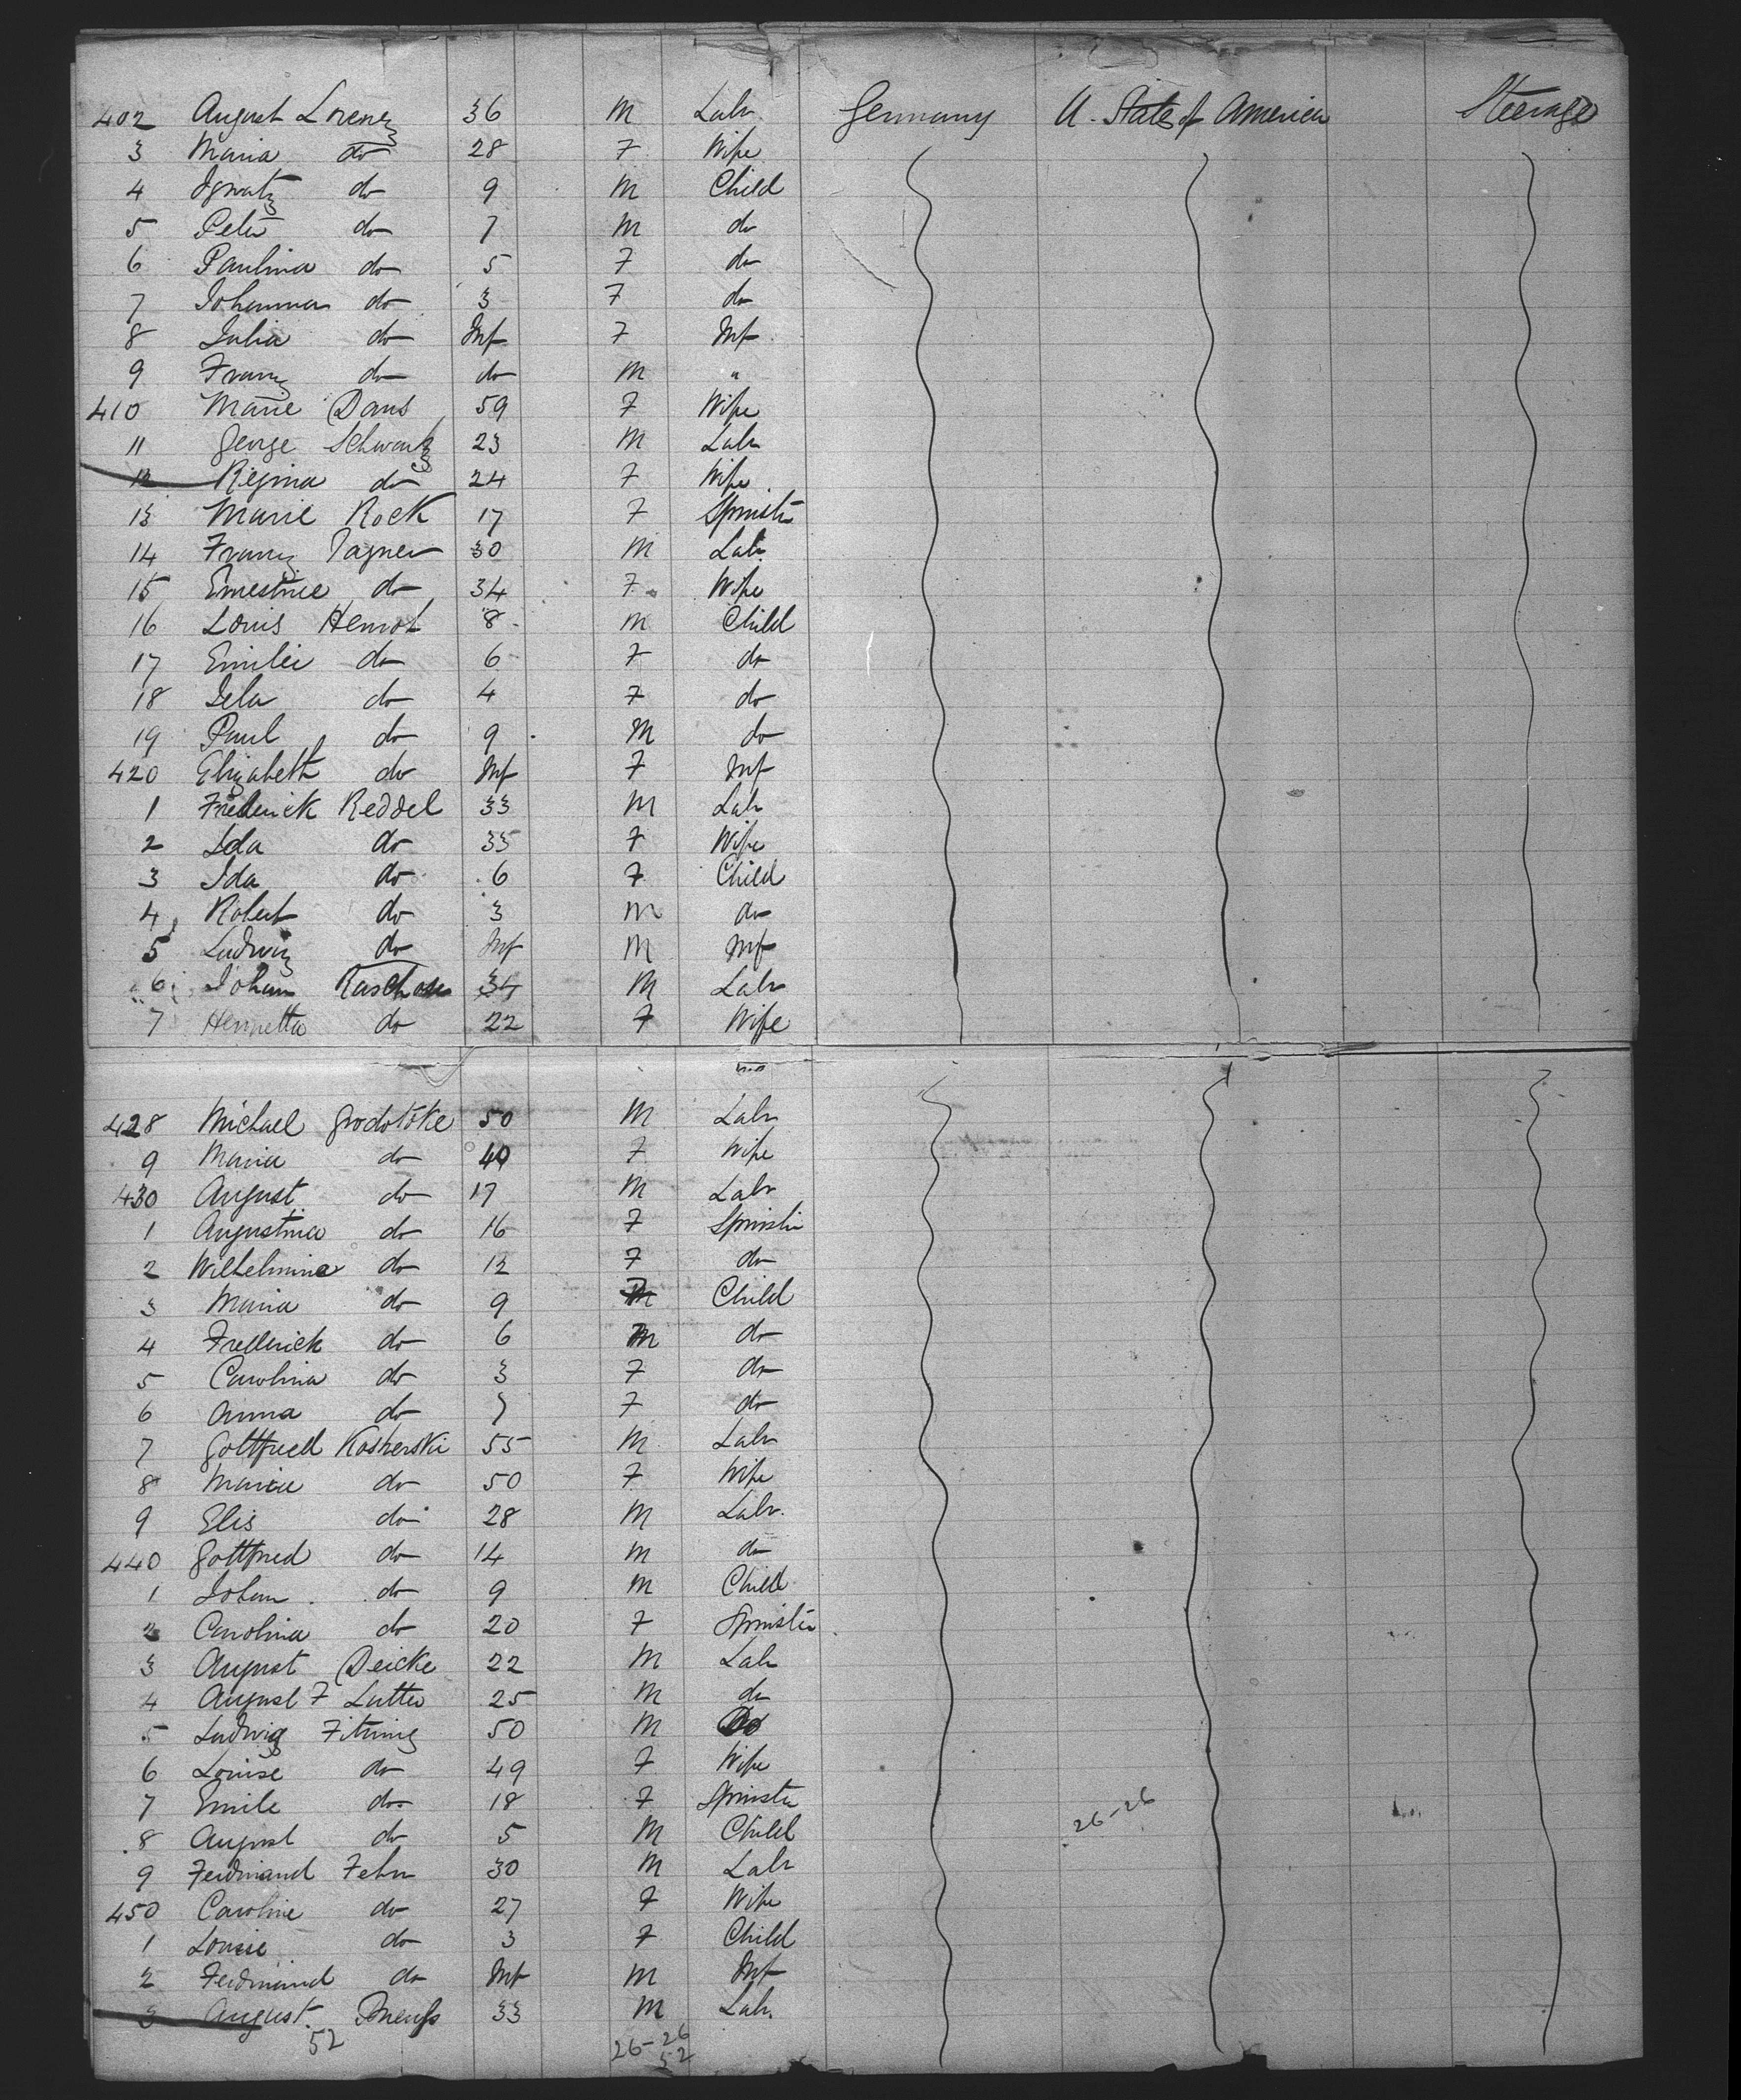 402 August Lorenz 36 M Labr. Germany U. States of America Steerage
3 Maria do 28 F Wife
4 Ignatz do 9 M Child
5 Peter do 7 M do
6 Paulina do 5 F do
7 Johanna do 3 F do
8 Julia do Inf F Inf
9 Franz do do M "
410 Marie Dans 59 F Wife
11 George Schwartz 23 M Labr
12 Regina do 24 F Wife
13 Marie Rock 17 F Spinster
14 Franz Jagner 30 M Labr.
15 Ernestine do 34 F Wife
16 Louis 8 M Child
17 Emilie do 6 F do
18 do 4 F do
19 Paul do 9 M do
420 Elizabeth do Inf F Inf
1 Frederick Reddel 33 M Labr
2 Ida do 35 F Wife
3 Ida do 6 F Child
4 Robert do 3 M do
5 Ludwig do Inf M Inf
6 Johan 34 M Labr
7 Henrietta do 22 F Wife
428 Michael 50 M Labr
9 Maria do 40 F Wife
430 August do 17 M Labr
1 Augustina do 16 F Spinster
2 Wilhelmina do 12 F do
3 Maria do 9 F Child
4 Frederick do 6 M do
5 Carolina do 3 F do
6 Anna do F do
7 Gottfried Kosherski 55 M Labr
8 Maria do 50 F Wife
9 Elis do 28 M Labr.
440 Gottfried do 14 M do
1 Johan do 9 M Child
2 Carolina do 20 F Spinster
3 August Deicke 22 M Labr
4 August F Lutter 25 M do
5 Ludwig 50 M Do
6 Louise do 49 F Wife
7 Emile do 18 F Spinster
8 August do 5 M Child 26-26
9 Ferdinand Fehr 30 M Labr
450 Caroline do 27 F Wife
1 Louise do 3 F Child
2 Ferdinand do Inf M Inf
3 August 33 M Labr.
52 26-26
52